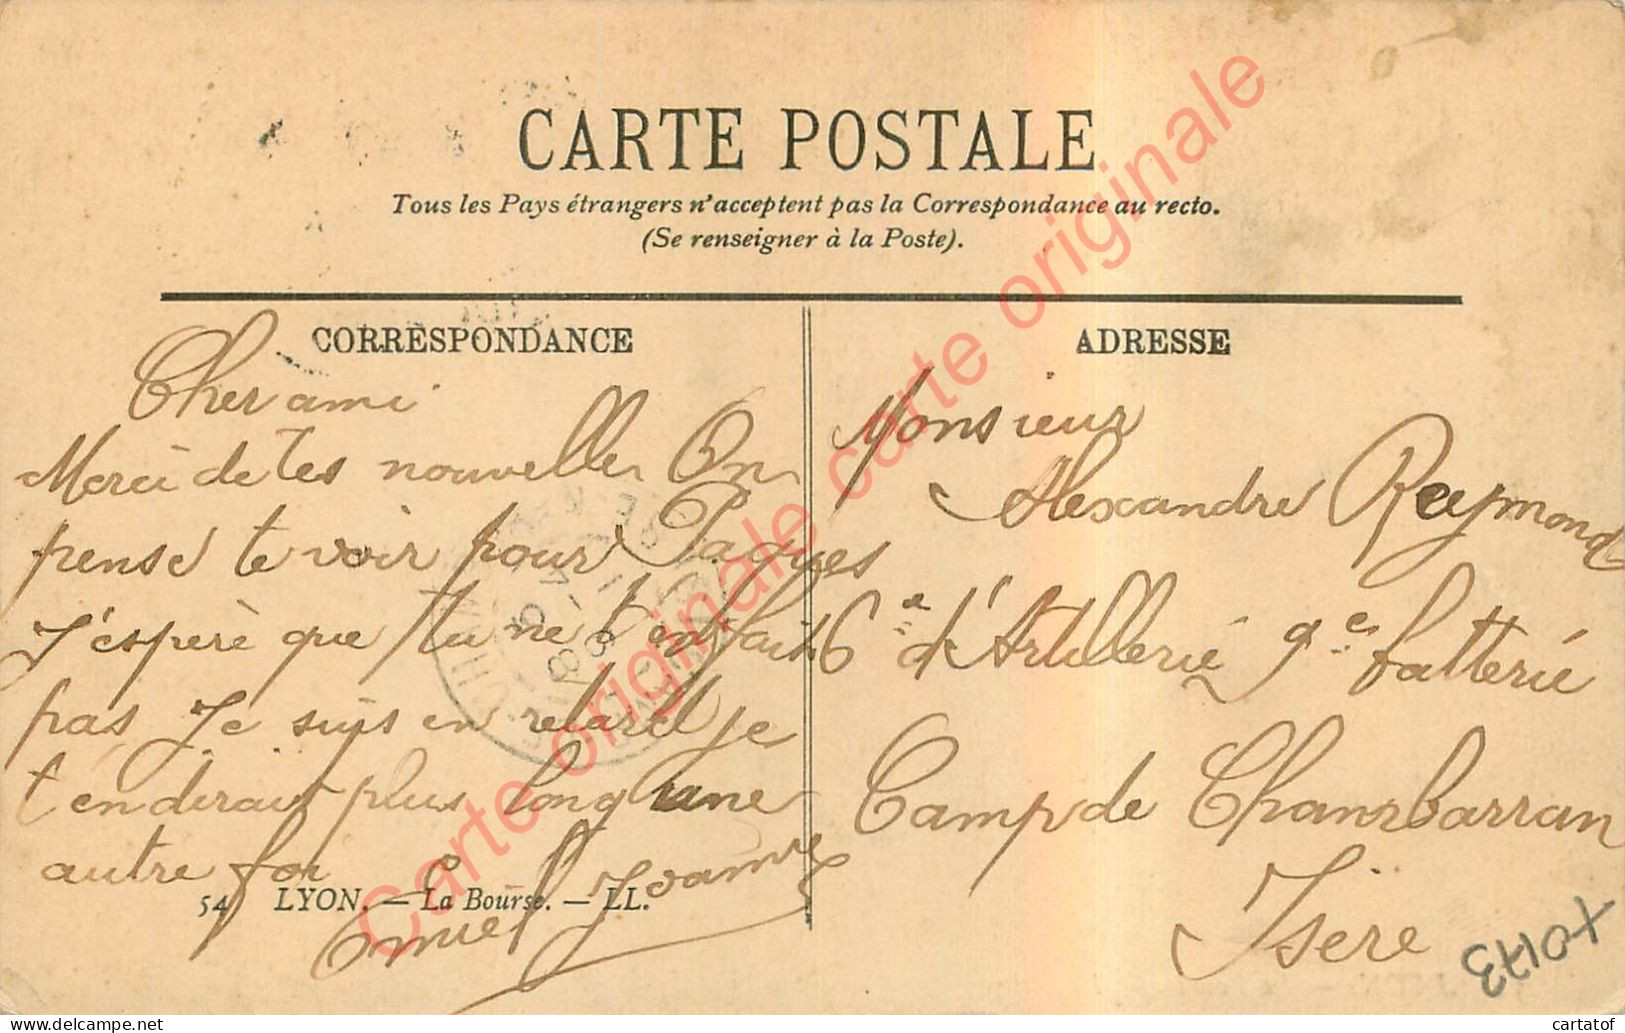 CARTE POSTALE
Tous les Pays étrangers n'acceptent pas la Correspondance au recto.
(Se renseigner à la Poste).
CORRESPONDANCE
Cher ami
Merci de tes nouvelles On
pense te voir pour Paques
J'espère que tu ne t'en fait
pas Je suis en retard je
t'endirait plus long une
autre foi
54 LYON. — La Bourse. — LL.
ADRESSE
Monsieur
Alexandre Reymond
6e d'Artillerie 9e batterie
Camp de Chambarran
Isère
Carte originale carte originale
Carte originale
cartatof